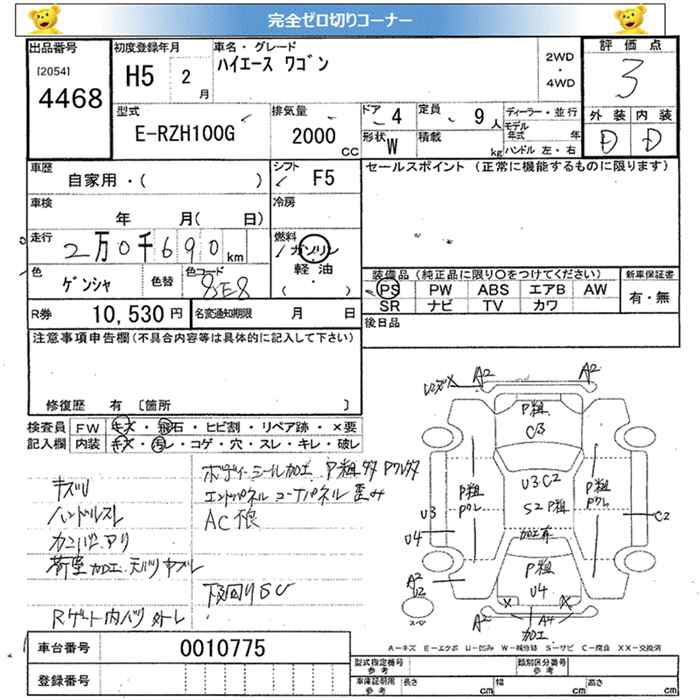 完全ゼロ切りコーナー
出品番号
[2054]
4468
初度登録年月
H5 2月
車名・グレード
ハイエース ワゴン
2WD
・
4WD
評価点
3
外装 内装
D D
型式
E-RZH100G
排気量
2000 CC
ドア 4
定員 9人
形状 W
積載 kg
ディーラー・並行
モデル年式 年
ハンドル 左・右
車歴
自家用・( )
シフト
F5
セールスポイント (正常に機能するものに限ります)
車検
年 月( 日)
冷房
走行
2万0千690km
燃料
ガソリン
軽油
( ・ )
色
ゲンシャ
色替
色コード
8E8
装備品 (純正品に限り○をつけてください)
PS PW ABS エアB AW
SR ナビ TV カワ
新車保証書
有・無
R券 10,530円
名変通知期限 月 日
後日品
注意事項申告欄(不具合内容等は具体的に記入して下さい)
修復歴 有 〔箇所 〕
検査員記入欄
FW キズ・飛石・ヒビ割・リペア跡・×要
内装 キズ・汚レ・コゲ・穴・スレ・キレ・破レ
ボディーシール加工 P粗タタ Pワレタタ
キズU
エンドパネル コーナパネル 歪み
ハンドルスレ
AC不良
カンバン アリ
荷室加工 天バリキズレ
下回りSU
Rゲート内バリ外レ
A2 A2
P粗
C3
U3 C2
S2 P粗
加工有
P粗 Pワレ
P粗 Pワレ
U3
U4
C2
A2
U2
P粗
U4
X X
A2 A4
加工
スペア
A−キズ E−エクボ U−凹み W−補修跡 S−サビ C−腐食 XX−交換済
車台番号 0010775
登録番号
型式指定番号 参考
類別区分番号 参考
車庫証明期限 参考
長さ cm
幅 cm
高さ cm